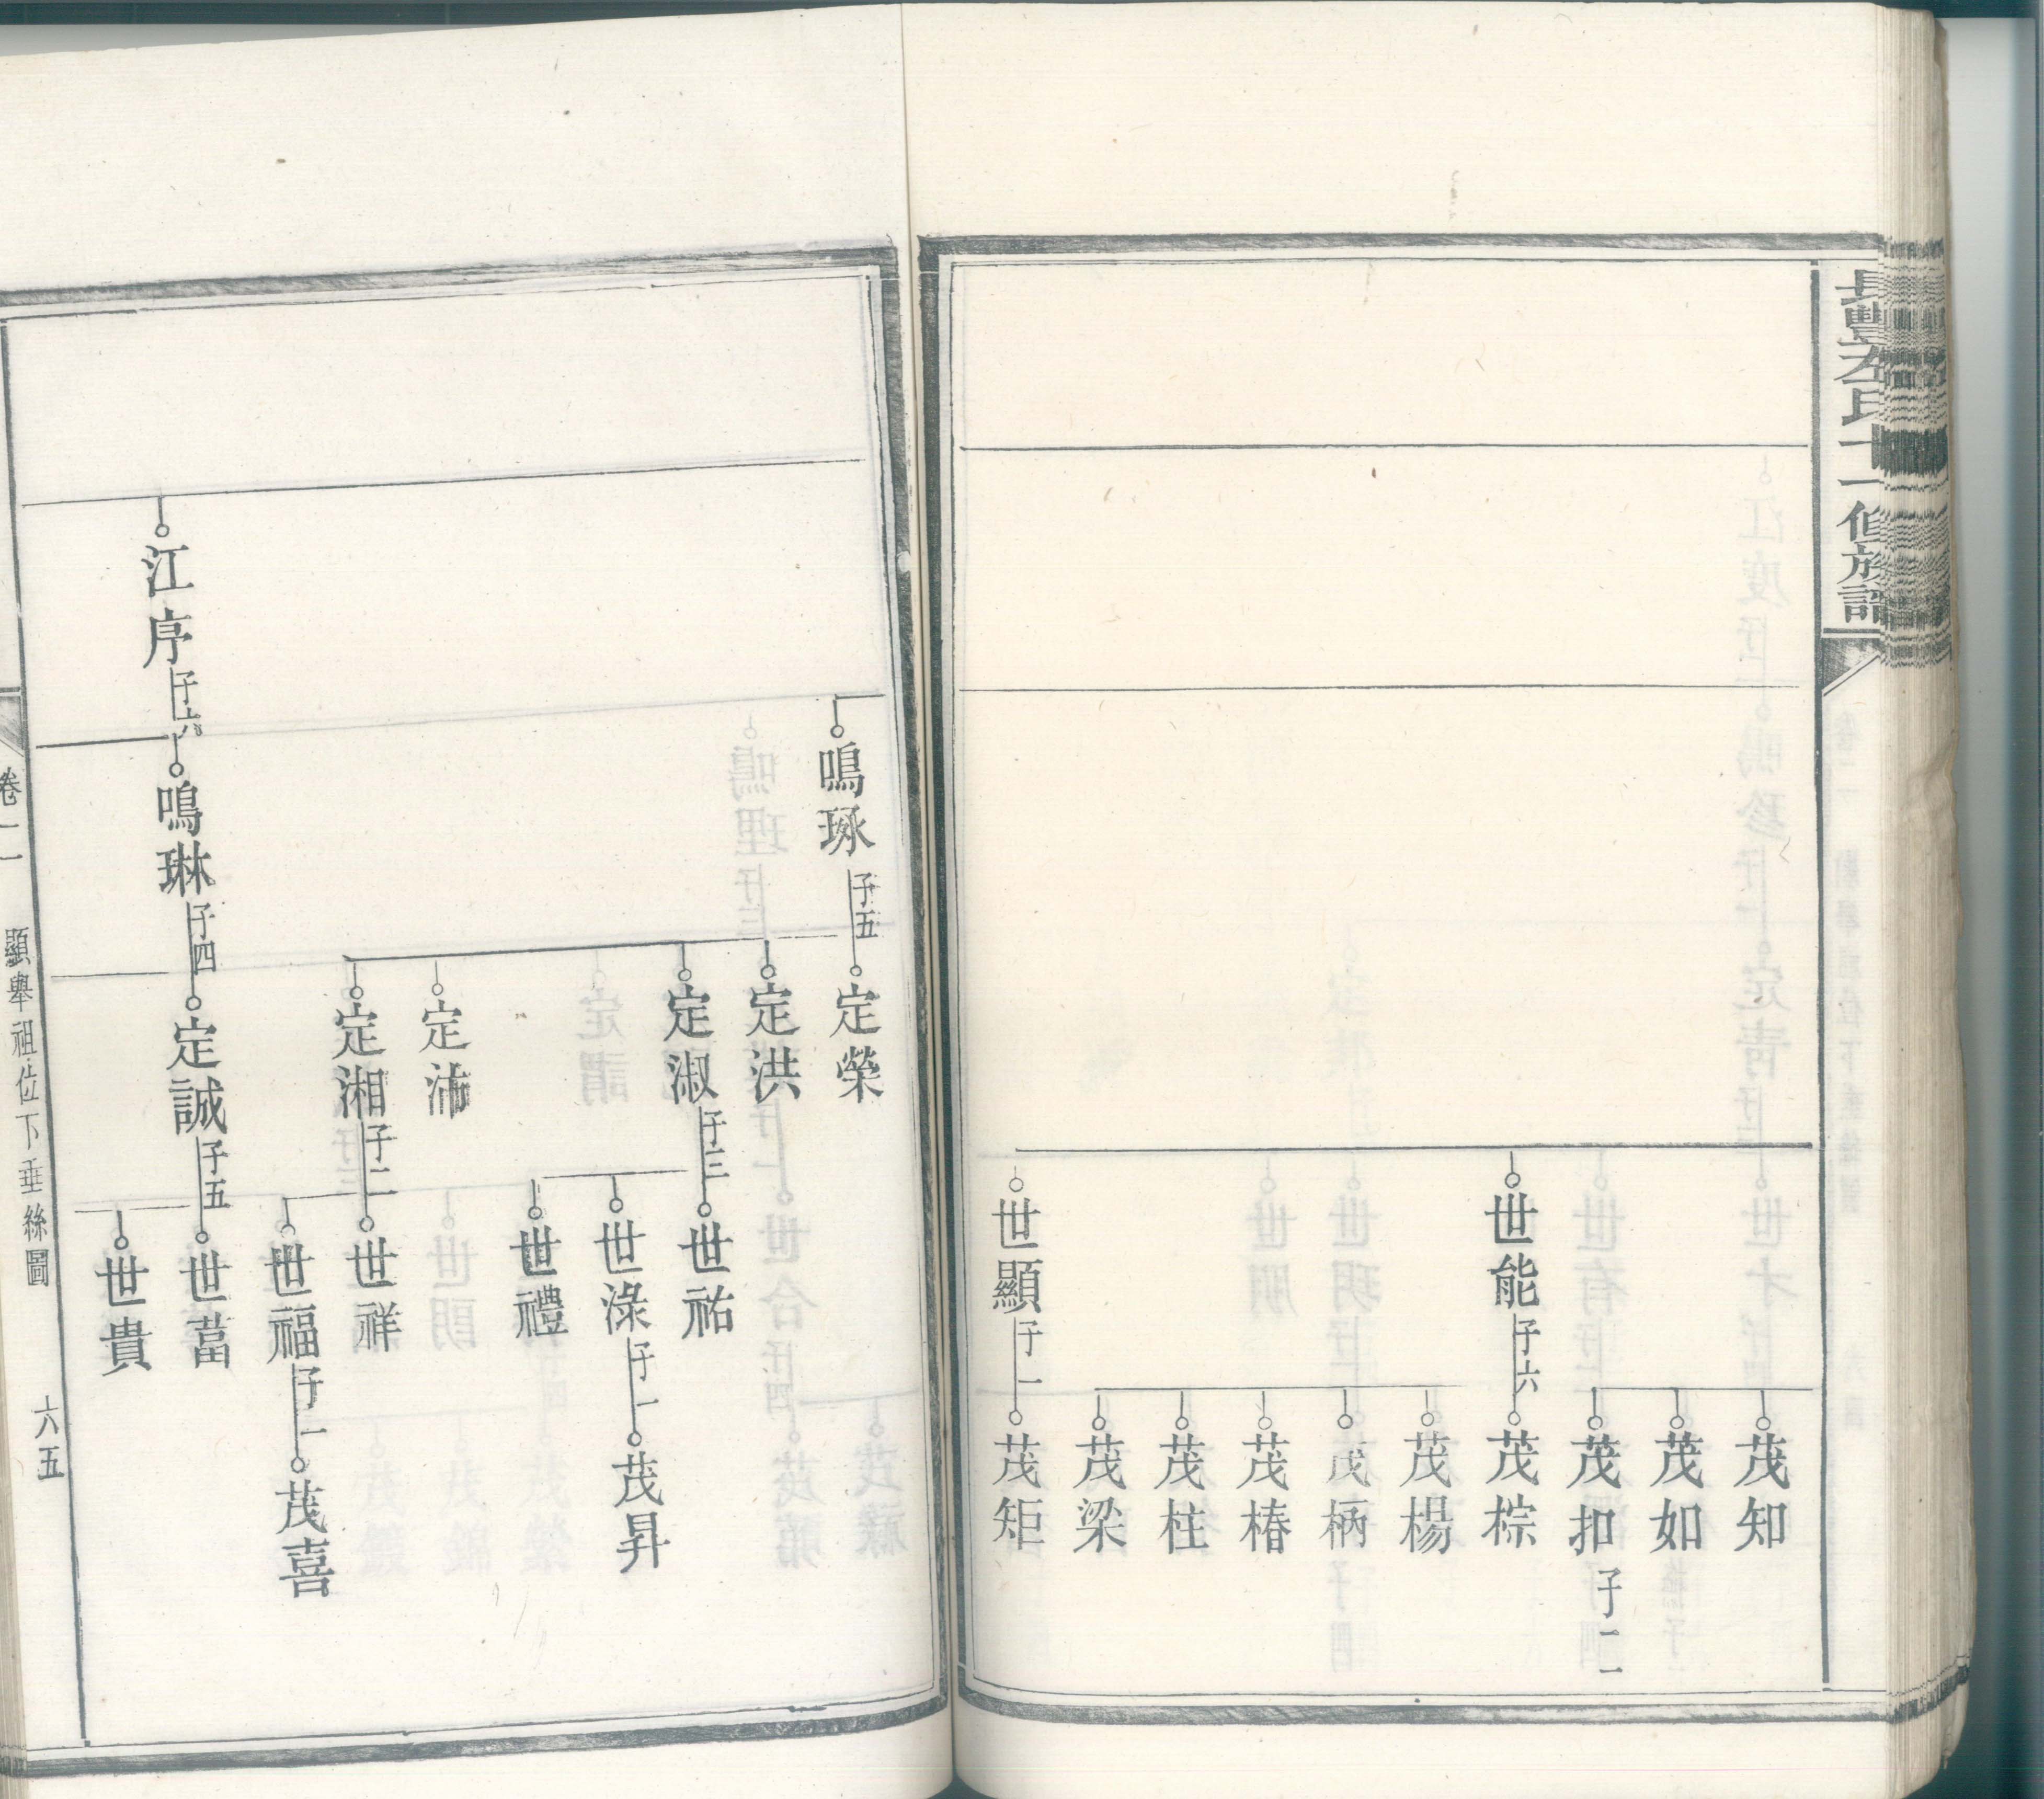 長豐左氏十一修族譜
茂知
茂如
茂扣 子二
世能 子六
茂棕
茂楊
茂柄
茂椿
茂柱
茂梁
世顯 子一
茂矩
鳴琢 子五
定榮
定洪
定淑 子三
世祐
世淥 子一
茂昇
世禮
定沛
定湘 子二
世祥
世福 子一
茂喜
江序 子六
鳴琳 子四
定誠 子五
世富
世貴
卷二
顯舉祖位下垂絲圖
六五